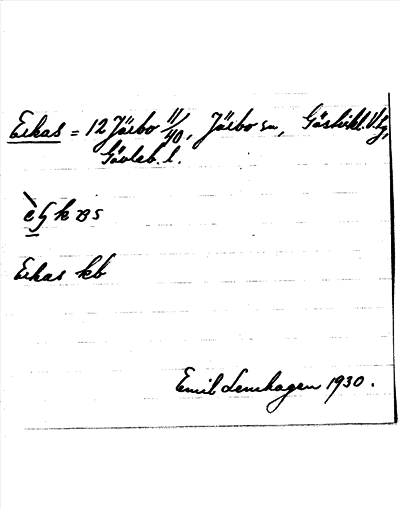 Eikas = 12 Järbo 11/40, Järbo sn, Gästrikl. V. tg,
Gävleb. l.
Eikas kb
Emil Lenhagen 1930.